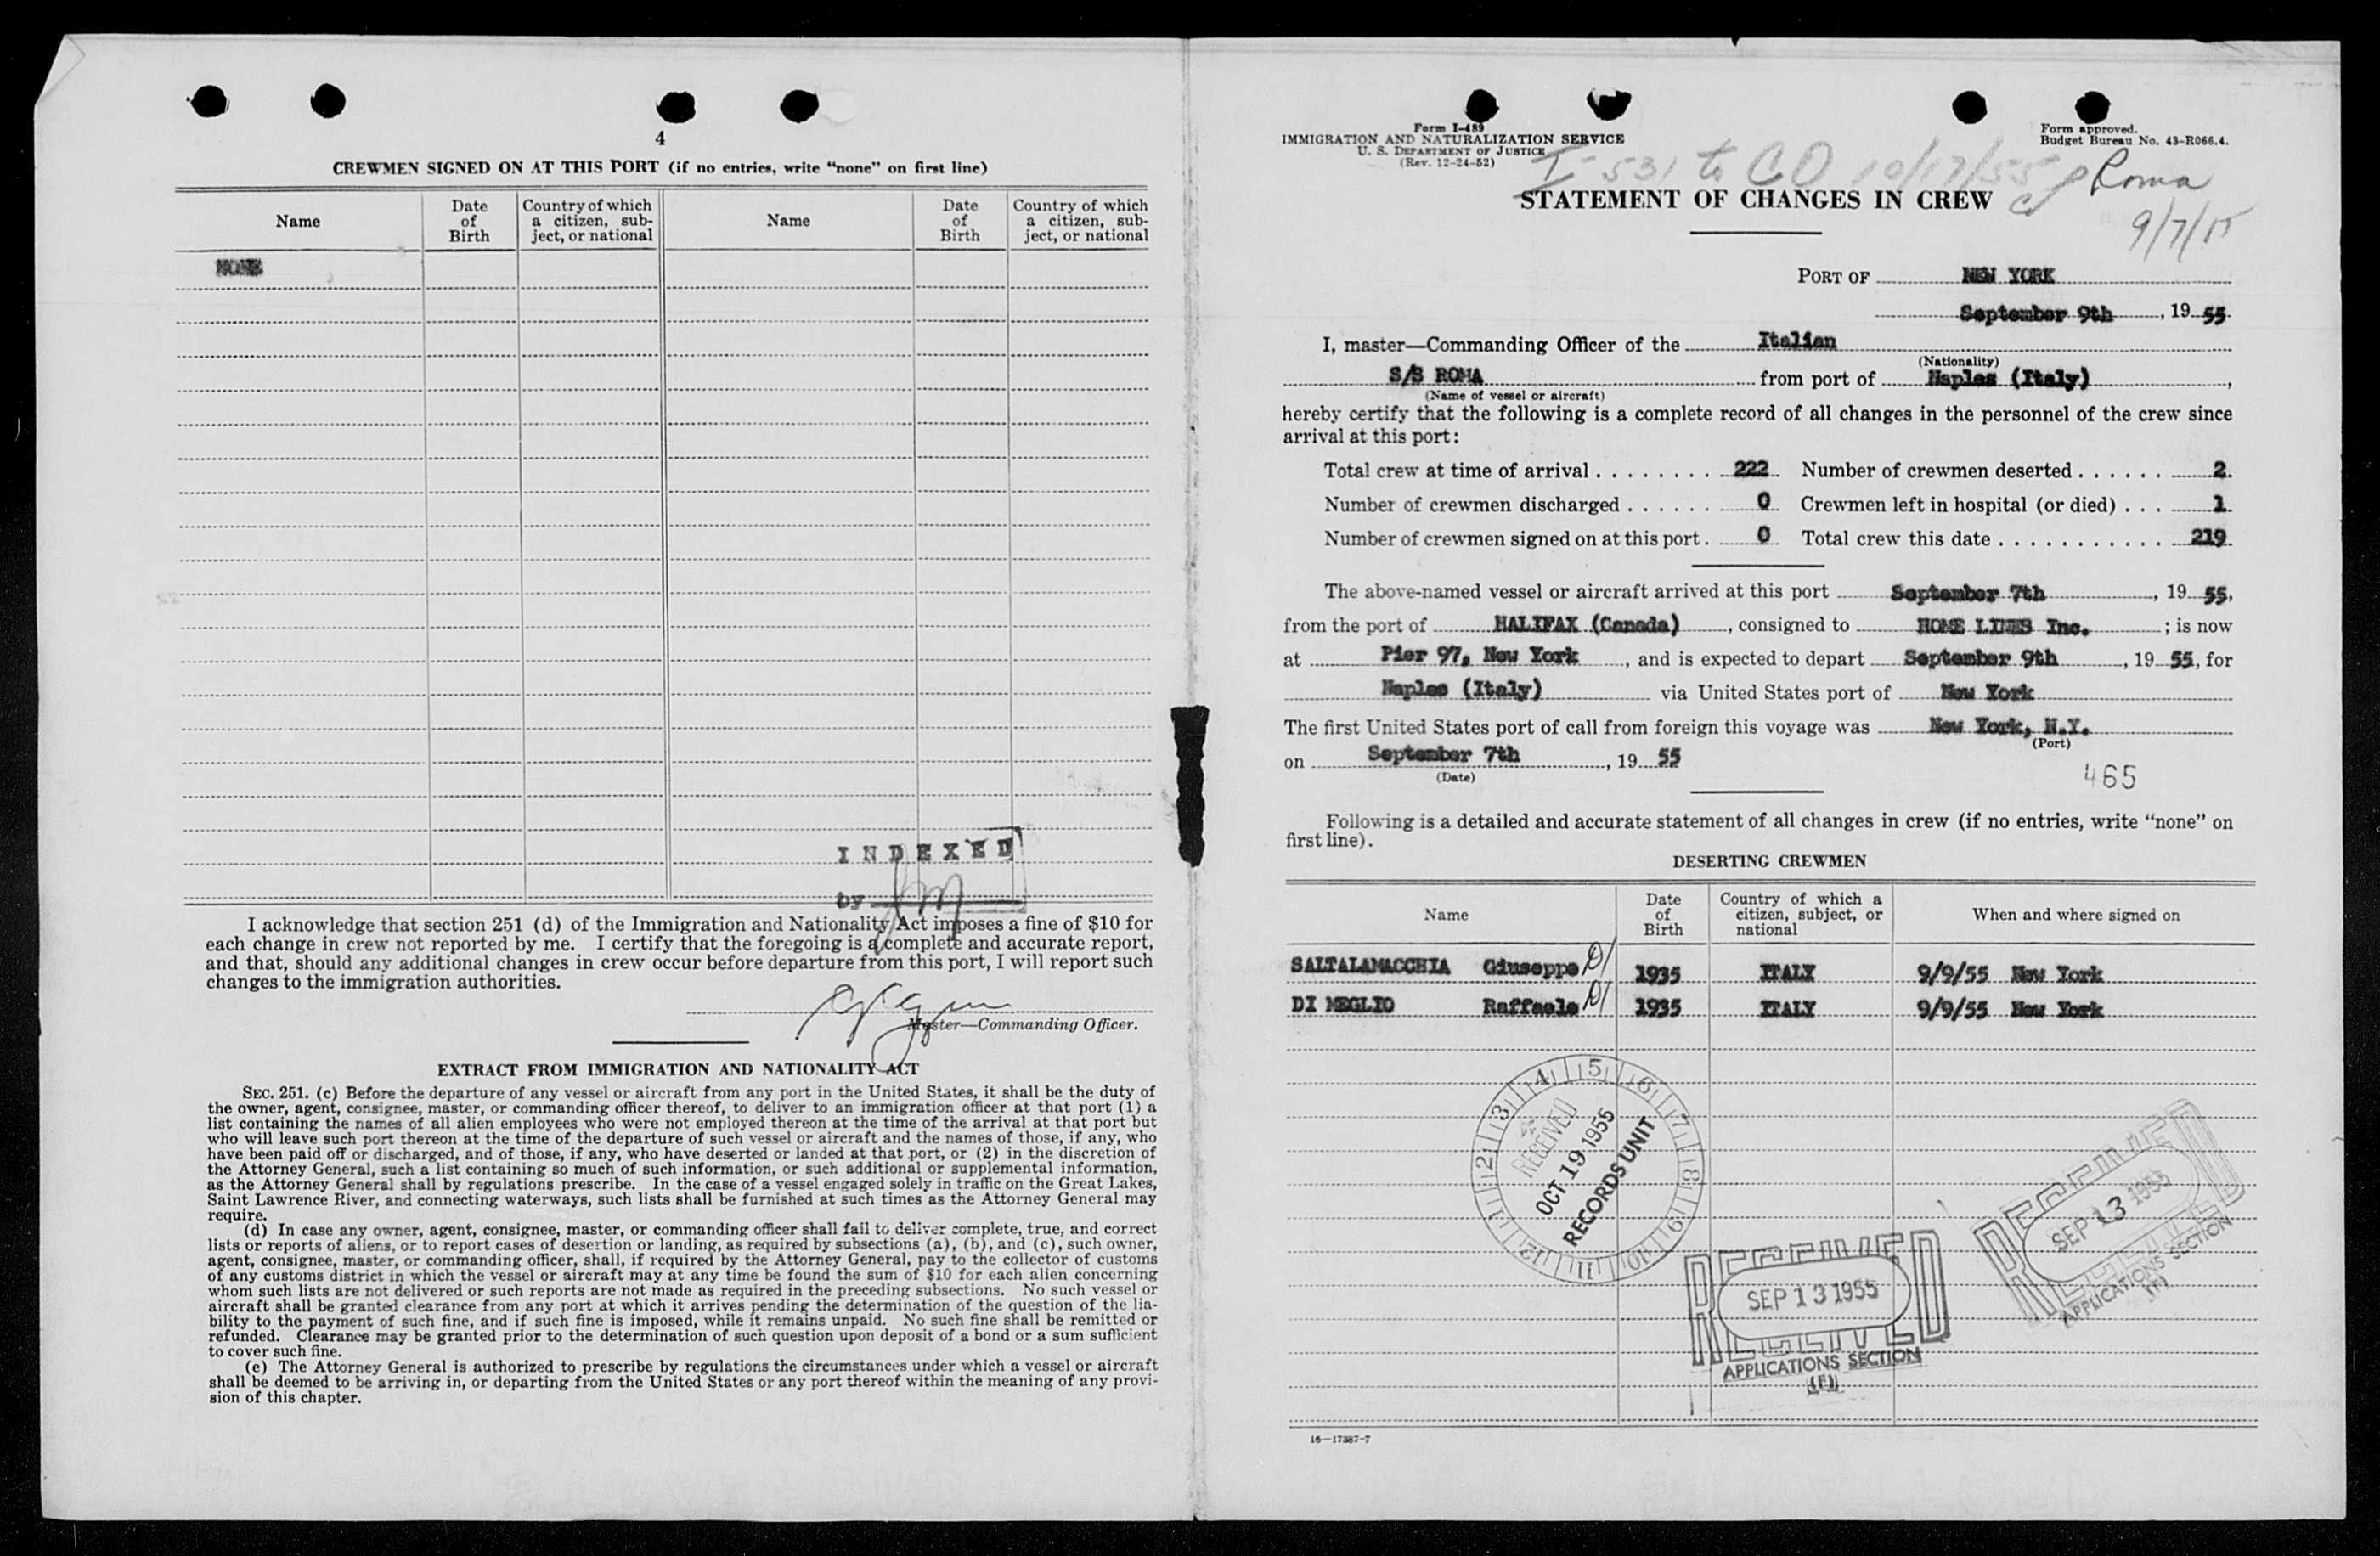 4
CREWMEN SIGNED ON AT THIS PORT (if no entries, write “none” on first line)
Name
Date
of
Birth
Country of which
a citizen, sub-
ject, or national
Name
Date
of
Birth
Country of which
a citizen, sub-
ject, or national
NONE
INDEXED
by
I acknowledge that section 251 (d) of the Immigration and Nationality Act imposes a fine of $10 for
each change in crew not reported by me. I certify that the foregoing is a complete and accurate report,
and that, should any additional changes in crew occur before departure from this port, I will report such
changes to the immigration authorities.
Master—Commanding Officer.
EXTRACT FROM IMMIGRATION AND NATIONALITY ACT
SEC. 251. (c) Before the departure of any vessel or aircraft from any port in the United States, it shall be the duty of
the owner, agent, consignee, master, or commanding officer thereof, to deliver to an immigration officer at that port (1) a
list containing the names of all alien employees who were not employed thereon at the time of the arrival at that port but
who will leave such port thereon at the time of the departure of such vessel or aircraft and the names of those, if any, who
have been paid off or discharged, and of those, if any, who have deserted or landed at that port, or (2) in the discretion of
the Attorney General, such a list containing so much of such information, or such additional or supplemental information,
as the Attorney General shall by regulations prescribe. In the case of a vessel engaged solely in traffic on the Great Lakes,
Saint Lawrence River, and connecting waterways, such lists shall be furnished at such times as the Attorney General may
require.
(d) In case any owner, agent, consignee, master, or commanding officer shall fail to deliver complete, true, and correct
lists or reports of aliens, or to report cases of desertion or landing, as required by subsections (a), (b), and (c), such owner,
agent, consignee, master, or commanding officer, shall, if required by the Attorney General, pay to the collector of customs
of any customs district in which the vessel or aircraft may at any time be found the sum of $10 for each alien concerning
whom such lists are not delivered or such reports are not made as required in the preceding subsections. No such vessel or
aircraft shall be granted clearance from any port at which it arrives pending the determination of the question of the lia-
bility to the payment of such fine, and if such fine is imposed, while it remains unpaid. No such fine shall be remitted or
refunded. Clearance may be granted prior to the determination of such question upon deposit of a bond or a sum sufficient
to cover such fine.
(e) The Attorney General is authorized to prescribe by regulations the circumstances under which a vessel or aircraft
shall be deemed to be arriving in, or departing from the United States or any port thereof within the meaning of any provi-
sion of this chapter.
Form I-489
IMMIGRATION AND NATURALIZATION SERVICE
U. S. DEPARTMENT OF JUSTICE
(Rev. 12-24-52)
Form approved.
Budget Bureau No. 43-R066.4.
I-531 to CO 10/17/55
Roma
9/7/55
STATEMENT OF CHANGES IN CREW
PORT OF NEW YORK
September 9th, 19 55
I, master—Commanding Officer of the Italian
(Nationality)
S/S ROMA from port of Naples (Italy),
(Name of vessel or aircraft)
hereby certify that the following is a complete record of all changes in the personnel of the crew since
arrival at this port:
Total crew at time of arrival . . . . . . . . . 222 Number of crewmen deserted . . . . . . 2
Number of crewmen discharged . . . . . . 0 Crewmen left in hospital (or died) . . . 1
Number of crewmen signed on at this port . 0 Total crew this date . . . . . . . . . . . . 219
The above-named vessel or aircraft arrived at this port September 7th, 19 55,
from the port of HALIFAX (Canada), consigned to HOME LINES Inc.; is now
at Pier 97, New York, and is expected to depart September 9th, 19 55, for
Naples (Italy) via United States port of New York
The first United States port of call from foreign this voyage was New York, N.Y.
(Port)
on September 7th, 19 55
(Date)
465
Following is a detailed and accurate statement of all changes in crew (if no entries, write “none” on
first line).
DESERTING CREWMEN
Name
Date
of
Birth
Country of which a
citizen, subject, or
national
When and where signed on
SALTALAMACCHIA Giuseppe D/ 1935 ITALY 9/9/55 New York
DI MEGLIO Raffaele D/ 1935 ITALY 9/9/55 New York
1 2 3 4 5 6 7 8 9 10 11 12
RECEIVED
OCT 19 1955
RECORDS UNIT
RECEIVED
SEP 13 1955
RECEIVED
APPLICATIONS SECTION
(F)
RECEIVED
SEP 13 1955
RECEIVED
APPLICATIONS SECTION
(F)
16—17387-7